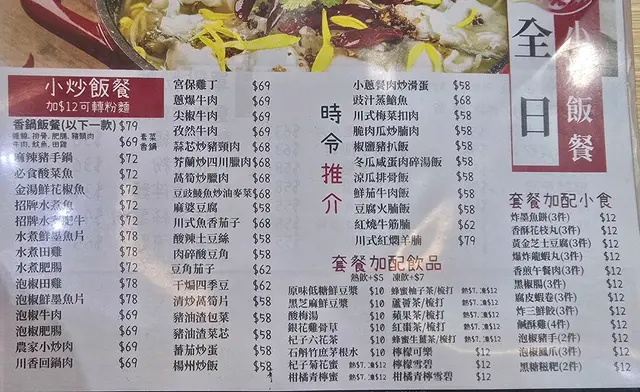 小炒飯餐
加$12可轉粉麵
香鍋飯餐(以下一款) $79
雞翼, 排骨, 肥腸, 豬頸肉
牛肉, 魷魚, 田雞
素菜香鍋 $69
麻辣豬手鍋 $72
必食酸菜魚 $72
金湯鮮花椒魚 $72
招牌水煮魚 $72
招牌水煮肥牛 $72
水煮鮮墨魚片 $78
水煮田雞 $78
水煮肥腸 $72
泡椒田雞 $78
泡椒鮮墨魚片 $78
泡椒牛肉 $69
泡椒肥腸 $69
農家小炒肉 $69
川香回鍋肉 $69
宮保雞丁 $69
蔥爆牛肉 $69
尖椒牛肉 $69
孜然牛肉 $69
蒜芯炒豬頸肉 $68
芥蘭炒四川臘肉 $68
萵筍炒臘肉 $68
豆豉鯪魚炒油麥菜 $68
麻婆豆腐 $58
川式魚香茄子 $68
酸辣土豆絲 $58
肉碎酸豆角 $58
豆角茄子 $62
干煸四季豆 $62
清炒萵筍片 $58
豬油渣包菜 $58
豬油渣菜芯 $58
蕃茄炒蛋 $58
楊州炒飯 $58
時令推介
小蔥餐肉炒滑蛋 $58
豉汁蒸鯧魚 $68
川式梅菜扣肉 $58
脆肉瓜炒腩肉 $58
椒鹽豬扒飯 $58
冬瓜咸蛋肉碎湯飯 $58
涼瓜排骨飯 $58
鮮茄牛肉飯 $58
豆腐火腩飯 $58
紅燒牛筋腩 $62
川式紅燜羊腩 $79
套餐加配飲品
熱飲+$5 凍飲+$7
原味低糖鮮豆漿 $10
黑芝麻鮮豆漿 $10
酸梅湯 $10
銀花雞骨草 $10
杞子六花茶 $10
石斛竹庶茅根水 $10
杞子菊花蜜 熱$7. 凍$12
柑橘青檸蜜 熱$7. 凍$12
蜂蜜柚子茶/梳打 熱$7. 凍$12
蘆薈茶/梳打 熱$7. 凍$12
蘋果茶/梳打 熱$7. 凍$12
紅棗茶/梳打 熱$7. 凍$12
蜂蜜生薑茶/梳打 熱$7. 凍$12
檸檬可樂 $12
檸檬雪碧 $12
柑橘青檸雪碧 $12
全日
小炒飯餐
套餐加配小食
炸墨魚餅(3件) $12
香酥花枝丸(3件) $12
黃金芝士豆腐(3件) $12
爆炸龍蝦丸(3件) $12
香煎午餐肉(3件) $12
黑椒腸(3件) $12
腐皮蝦卷(3件) $12
炸三鮮餃(3件) $12
鹹酥雞(4件) $12
泡椒豬手(2件) $12
泡椒鳳爪(2件) $12
黑糖糍粑(2件) $12